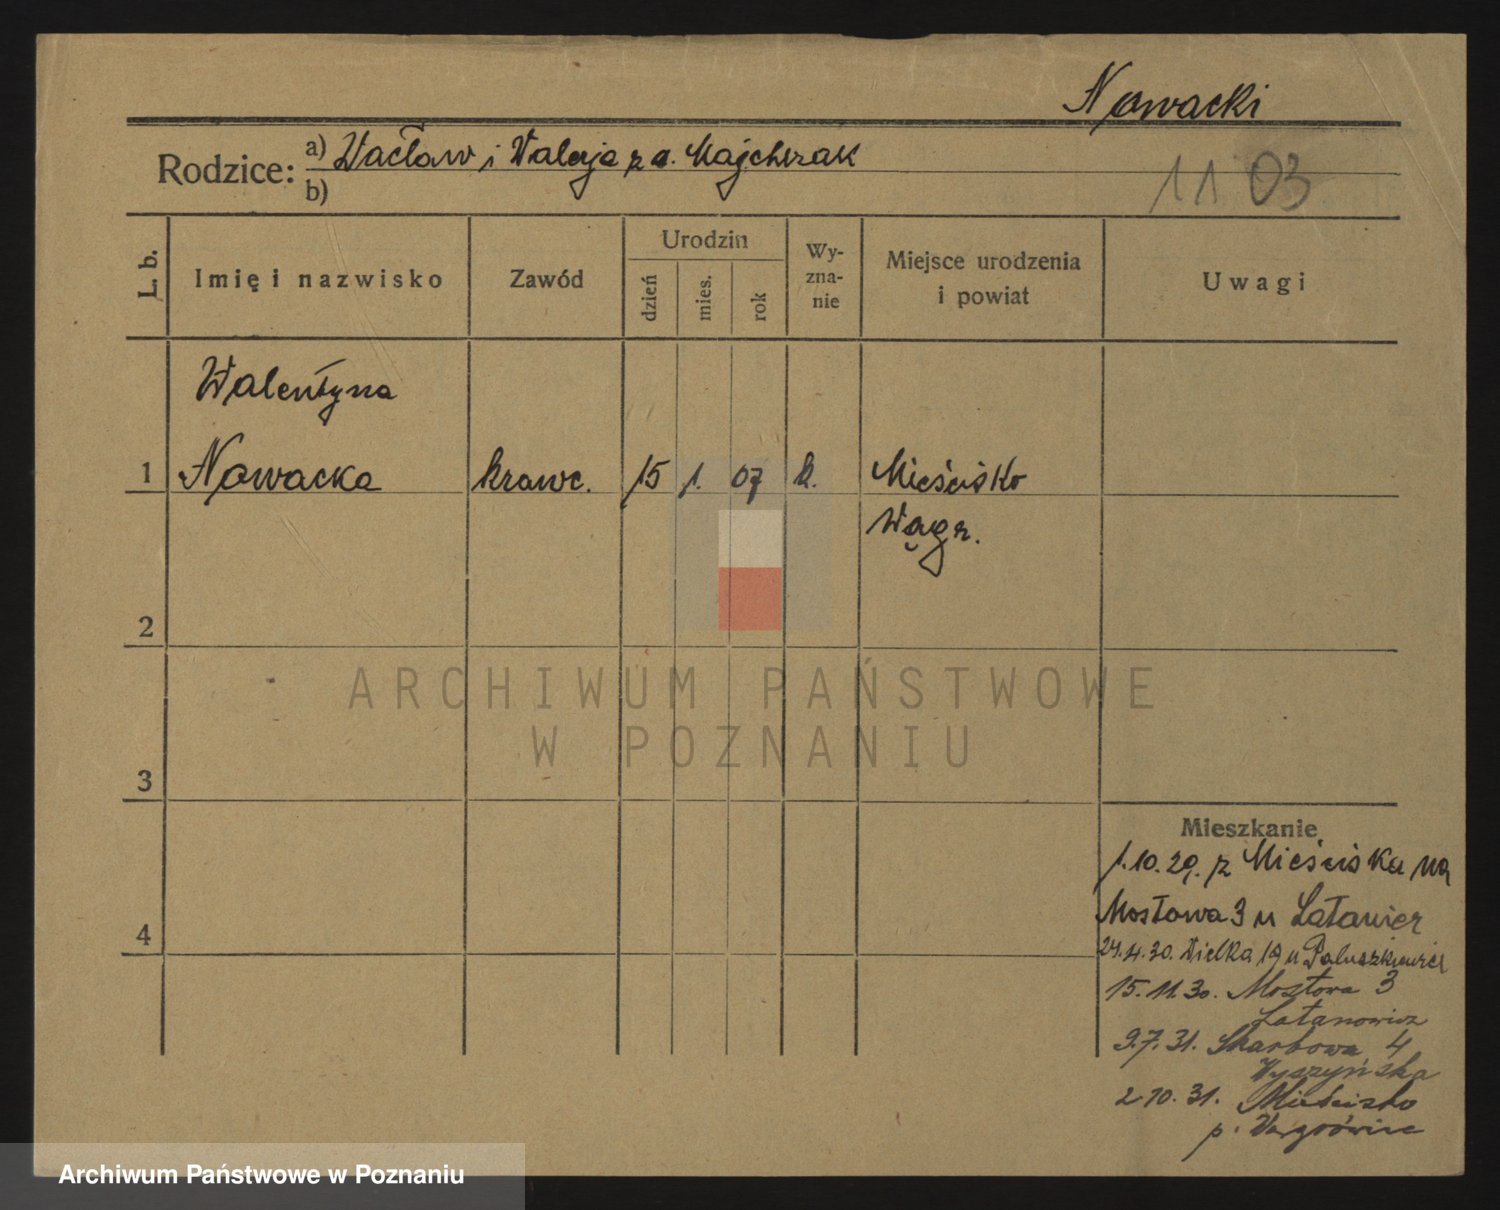 Nowacki
Rodzice: a) Wacław i Waleja z d. Majchrzak
b)
11 03
L. b.
Imię i nazwisko
Zawód
Urodzin
dzień
mies.
rok
Wy-
zna-
nie
Miejsce urodzenia
i powiat
Uwagi
Walentyna
1 Nowacka krawc. 15 1. 07 k. Mieścisko
Wągr.
2
ARCHIWUM PAŃSTWOWE
W POZNANIU
3
Mieszkanie
1.10.29. z Mieściska na
Mostowa 3 u Latanier
4
24.4.30. Wielka 19 u Paluszkiewicz
15.11.30. Mostowa 3
Latanowicz
9.7.31. Skarbowa 4
Wyszyńska
2.10.31. Mieścisko
p. Wągrówiec
Archiwum Państwowe w Poznaniu